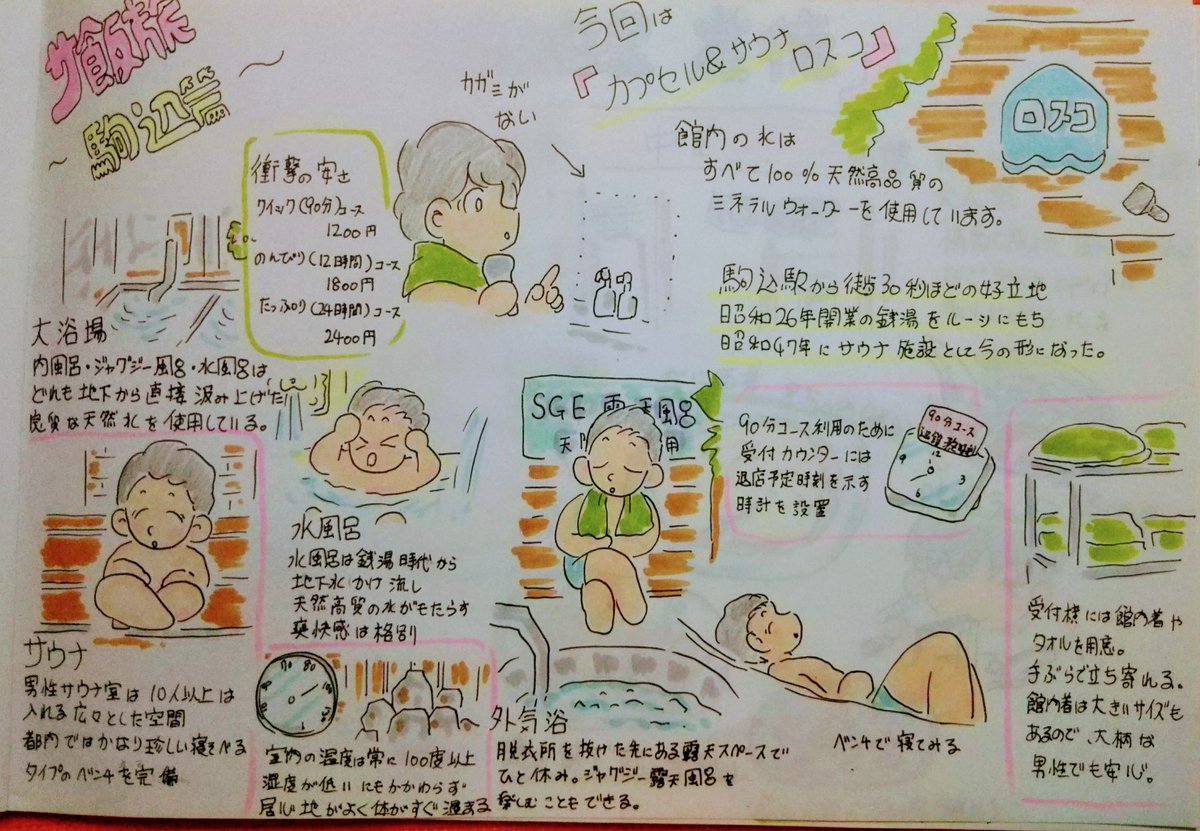 サ飯旅
～駒込篇～
今回は
『カプセル&サウナ
ロスコ』
カガミが
ない
ロスコ
館内の水は
すべて100%天然高品質の
ミネラルウォーターを使用しています。
衝撃の安さ
クイック(90分)コース
1200円
のんびり(12時間)コース
1800円
たっぷり(24時間)コース
2400円
駒込駅から徒歩30秒ほどの好立地
昭和26年開業の銭湯をルーツにもち
昭和47年にサウナ施設として今の形になった。
大浴場
内風呂・ジャグジー風呂・水風呂は
どれも地下から直接汲み上げた
良質な天然水を使用している。
水風呂
水風呂は銭湯時代から
地下水かけ流し
天然高質の水がもたらす
爽快感は格別
SGE 露天風呂
天 用
90分コース利用のために
受付カウンターには
退店予定時刻を示す
時計を設置
90分コース
12
9 3
6
受付横には館内着や
タオルを用意。
手ぶらで立ち寄れる。
館内着は大きいサイズも
あるので、大柄な
男性でも安心。
サウナ
男性サウナ室は10人以上は
入れる広々とした空間
都内ではかなり珍しい寝そべる
タイプのベンチを完備
室内の温度は常に100度以上
湿度が低いにもかかわらず
居心地がよく体がすぐ温まる
外気浴
脱衣所を抜けた先にある露天スペースで
ひと休み。ジャグジー露天風呂を
楽しむこともできる。
ベンチで寝てみる